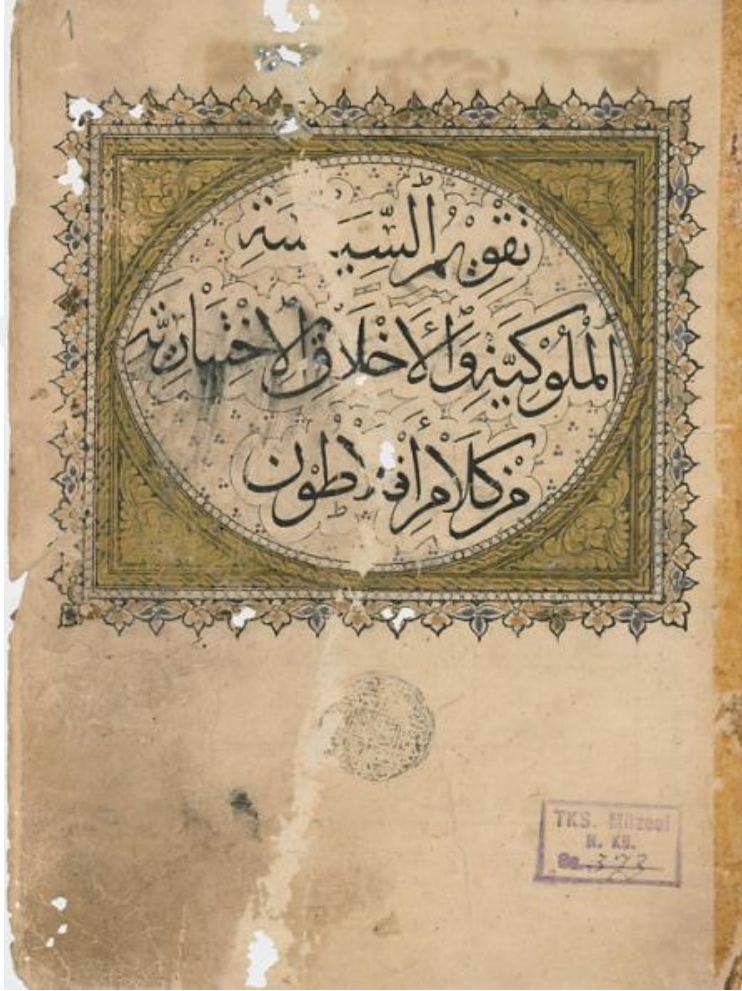 1
تقويم السياسة
الملوكية والأخلاق الاختيارية
من كلام أفلاطون
TKS. Müzesi
H. Kü.
373